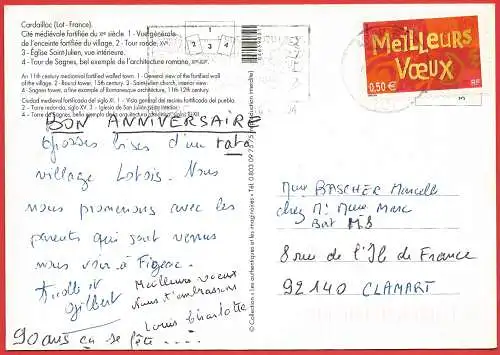 Cardaillac (Lot - France).
Cité médiévale fortifiée du XIe siècle. 1 - Vue générale
de l'enceinte fortifiée du village. 2 - Tour ronde, XVe.
3 - Église Saint-Julien, vue intérieure.
4 - Tour de Sagnes, bel exemple de l'architecture romane,
An 11th century medieval fortified town. 1 - General view of the fortified wall
of the village. 2 - Round tower, 15th century. 3 - Saint-Julien church, interior view.
4 - Sagnes tower, a fine example of Romanesque architecture, 11th 12th century.
Ciudad medieval fortificada del siglo XI. 1 - Vista general del recinto fortificado del pueblo.
2 - Torre redonda, siglo XV. 3 - Iglesia de San Julien
4 - Torre de Sagnes, bel exemplo de la arquitectura
1 2 3 4
BON ANNIVERSAIRE
Grosses bises d'un
village Lotois. Nous
nous promenons avec les
parents qui sont venus
nous voir à Figeac.
Gilbert
Meilleurs voeux
Nous t'embrassons
Louis Charlotte
90 ans ça se fête ....
© Collection : Les authentiques et les imaginaires - Tél 0 803 09 23 75 (reproduction interdite)
MEILLEURS
VŒUX
0,50 €
RF
Mme BASCHER Marcelle
chez Mr Mme Marc
Bat
8 rue de l'Ile de France
92140 CLAMART